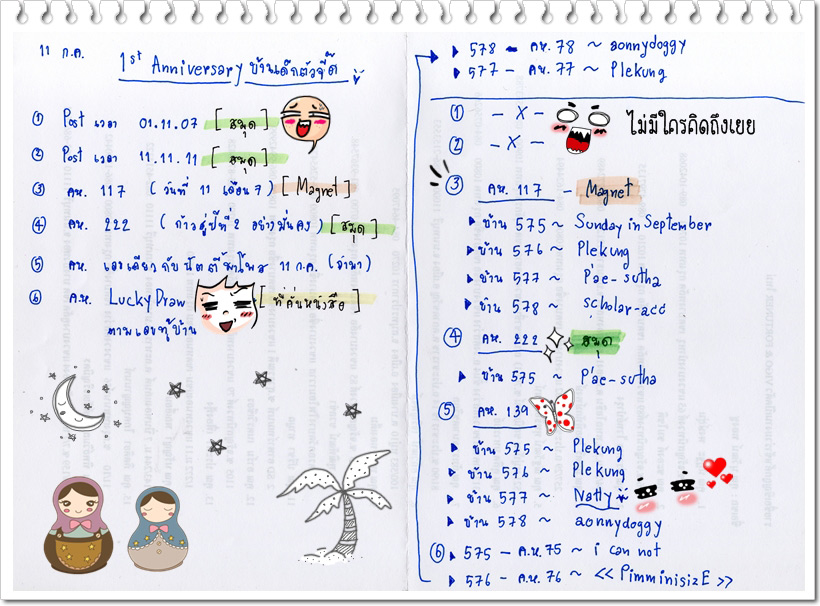 11 ก.ค.
1st Anniversary บ้านเด็กตัวจี๊ด
① Post เวลา 01.11.07 [สมุด]
② Post เวลา 11.11.11 [สมุด]
③ คห. 117 (วันที่ 11 เดือน 7) [Magnet]
④ คห. 222 (ก้าวสู่ปีที่ 2 อย่างมั่นคง) [สมุด]
⑤ คห. เลขเดียวกับนัตตี้มาโพส 11 ก.ค. (ล่าม่า)
⑥ คห. Lucky Draw [ที่คั่นหนังสือ]
ตามเลขที่บ้าน
▸ 578 - คห. 78 ~ aonnydoggy
▸ 577 - คห. 77 ~ Plekung
① - X -
② - X -
ไม่มีใครคิดถึงเยย
③ คห. 117 - Magnet
▸ บ้าน 575 ~ Sunday in September
▸ บ้าน 576 ~ Plekung
▸ บ้าน 577 ~ P'ae-sutha
▸ บ้าน 578 ~ scholar-acc
④ คห. 222 สมุด
▸ บ้าน 575 ~ P'ae-sutha
⑤ คห. 139
▸ บ้าน 575 ~ Plekung
▸ บ้าน 576 ~ Plekung
▸ บ้าน 577 ~ Natty
▸ บ้าน 578 ~ aonnydoggy
⑥ ▸ 575 - คห. 75 ~ i can not
▸ 576 - คห. 76 ~ << PimminisizE >>